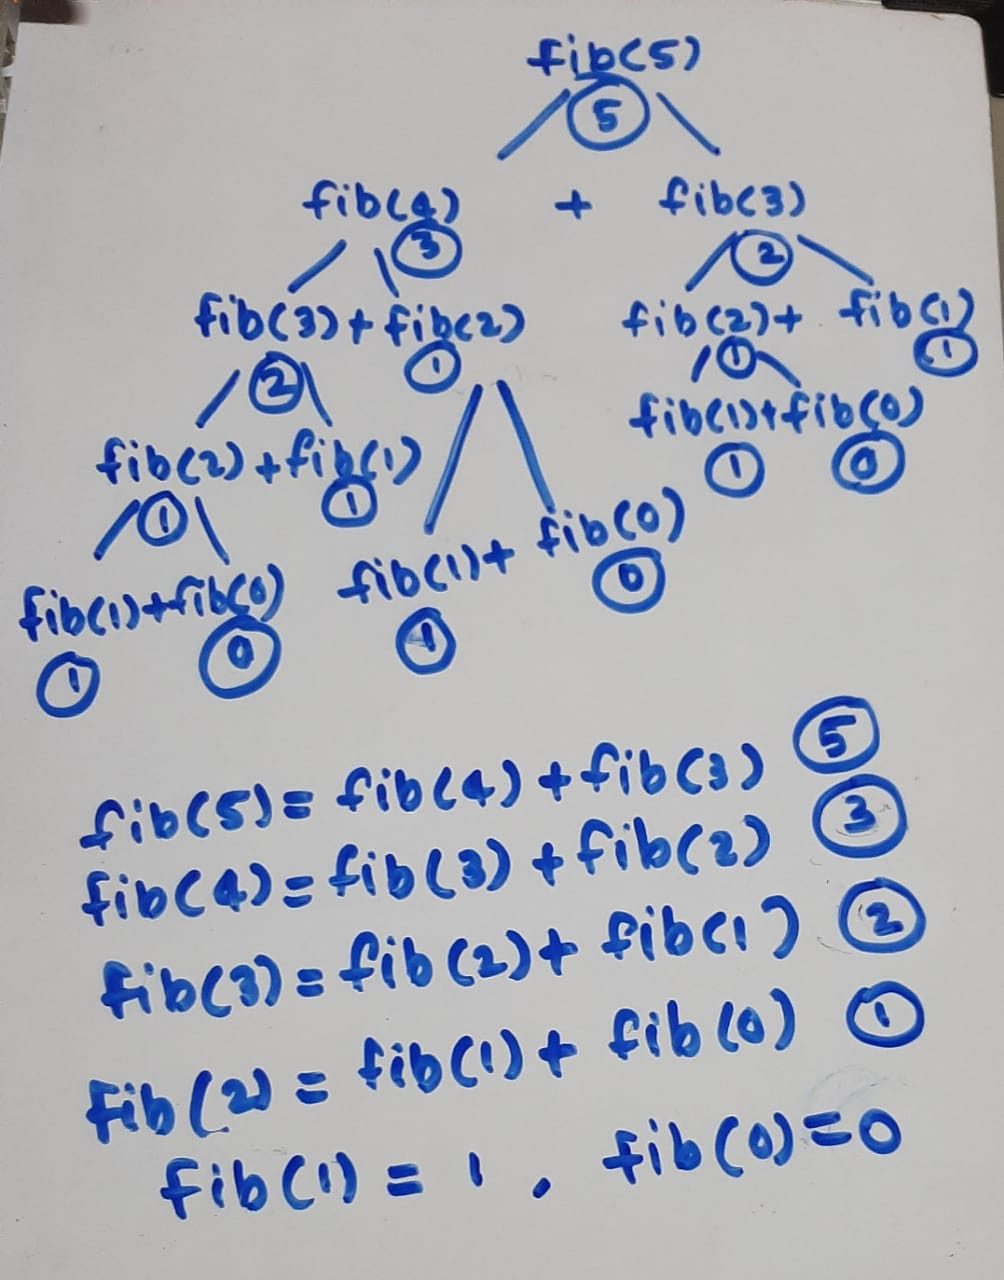 fib(5)
5
fib(4) + fib(3)
3 2
fib(3) + fib(2) fib(2) + fib(1)
2 1 1 1
fib(1) + fib(0)
fib(2) + fib(1) 1 0
1 1
fib(1) + fib(0)
fib(1) + fib(0) 1 0
1 0
fib(5) = fib(4) + fib(3) 5
fib(4) = fib(3) + fib(2) 3
fib(3) = fib(2) + fib(1) 2
fib(2) = fib(1) + fib(0) 1
fib(1) = 1 , fib(0) = 0